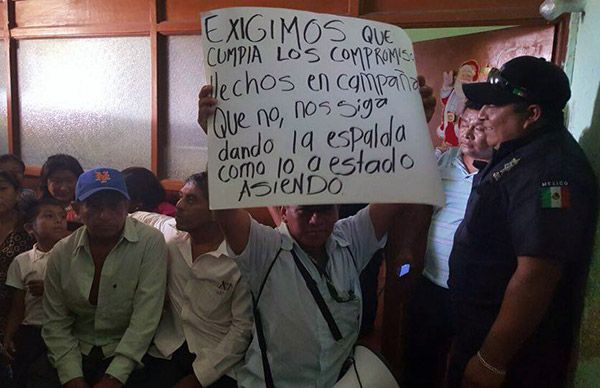 EXIGIMOS QUE
CUMPLA LOS COMPROMISO
HECHOS EN CAMPAÑA
QUE NO, NOS SIGA
dando LA ESPALDA
como lo a ESTADO
ASIENDO
MEXICO